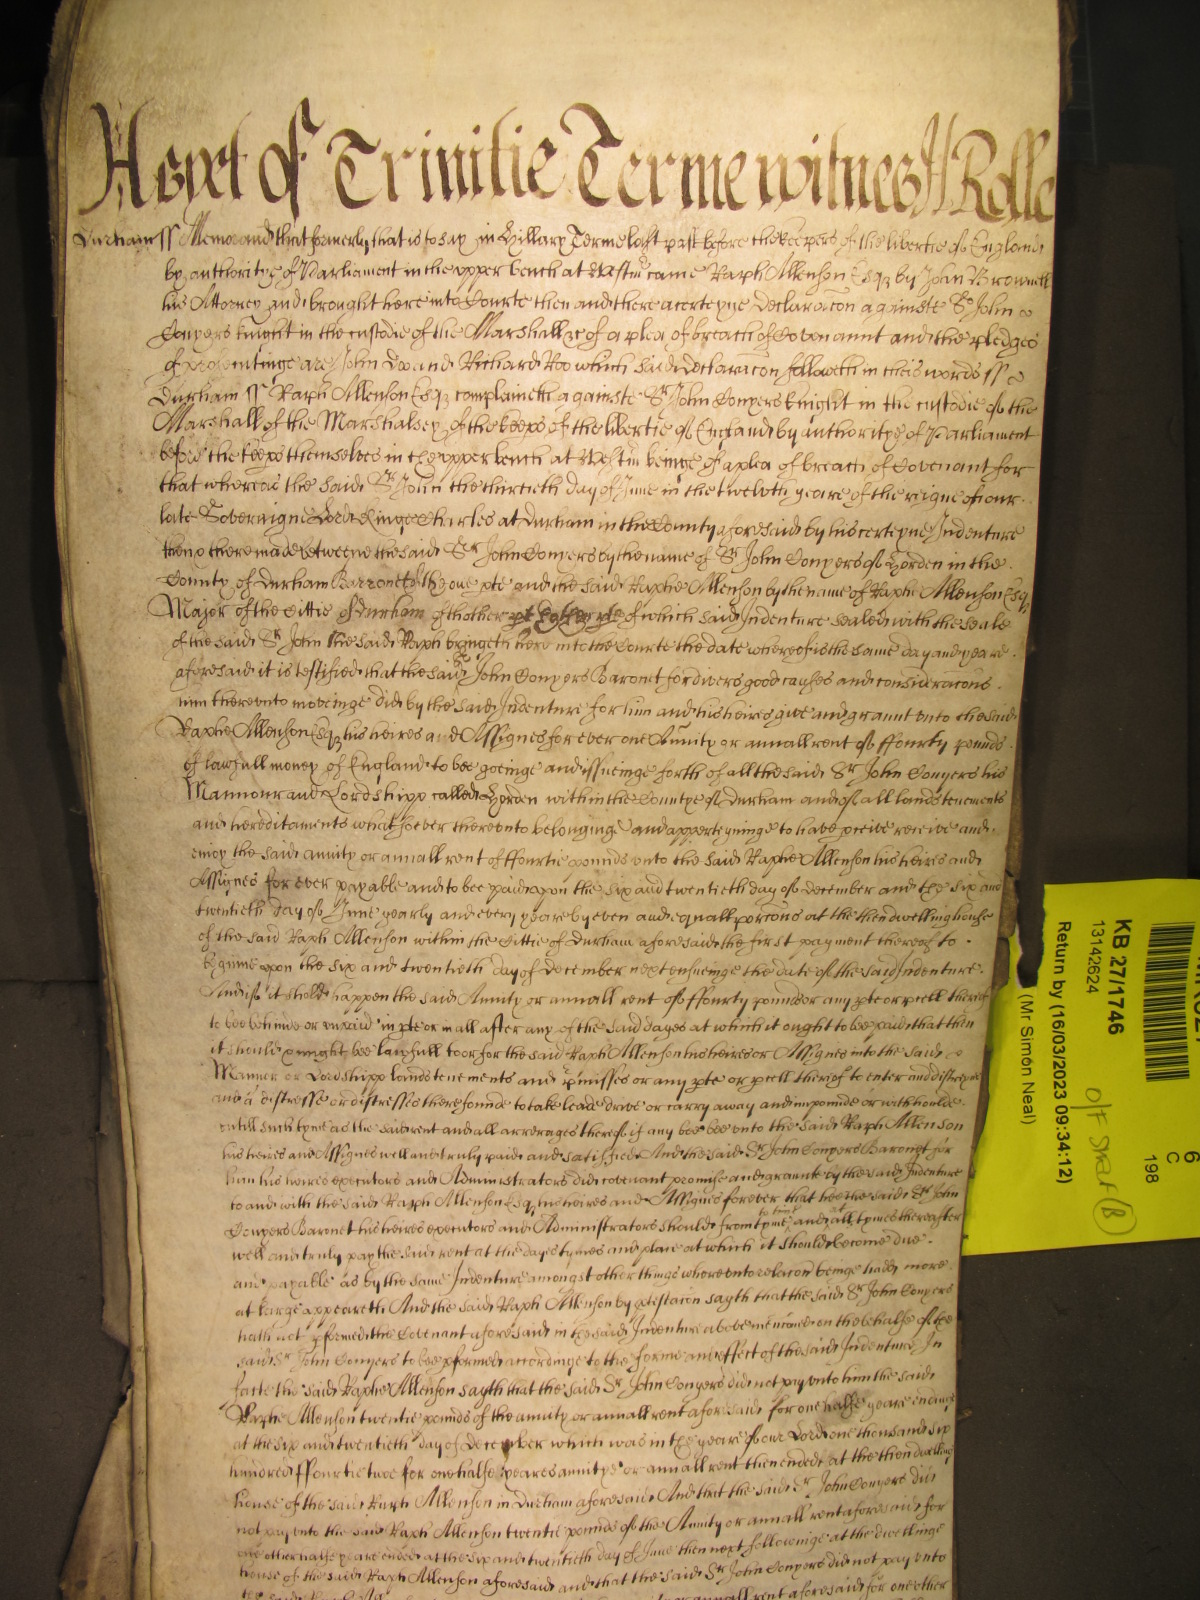 As yet of Trinitie Terme witnes H Rolle
Durham ss Memorand that formerly that is to say in Hillary Terme last past before the keepers of the libertie of England
by authoritye of Parliament in the upper bench at Westm came Raph Allenson Esqz by John Brownell
his Attorney and brought here into Courte then and there a certeyne declaracon againste Sr John
Conyers knight in the custodie of the Marshall &c of a plea of breach of Covenannt and the pledges
of prosecutinge are John Doe and Richard Roo which said declaracon followeth in theis words ss
Durham ss Raph Allenson Esqz complaineth againste Sr John Conyers knight in the custodie of the
Marshall of the Marshalsey of the keeps of the libertie of England by authoritye of Parliament
before the keeps themselves in the upper bench at Westm beinge of a plea of breach of Covenant for
that whereas the said Sr John the thirtieth day of June in the twelvth yeare of the reigne of our
late Soveraigne Lord Kinge Charles at Durham in the County aforesaid by his certeyne Indenture
then & there made betweene the said Sr John Conyers by the name of Sr John Conyers of Horden in the
County of Durham Barronet of the one pte and the said Raphe Allenson by the name of Raphe Allenson Esqz
Maior of the Cittie of Durham of thother pte of which said Indenture sealed with the seale
of the said Sr John the said Raph bringeth here into the Courte the date whereof is the same day and yeare
aforesaid it is testified that the said Sr John Conyers Baronet for divers good causes and consideracons
him thereunto moveinge did by the said Indenture for him and his heires give and graunt unto the said
Raphe Allenson Esqz his heires and Assignes for ever one Anuity or annall rent of ffourty pounds
of lawfull money of England to bee goeinge and issueinge forth of all the said Sr John Conyers his
Mannour and Lordshipp called Horden within the Countye of Durham and of all lands tenements
and hereditaments whatsoever thereunto belonginge and apperteyninge to have pceive receive and
enioy the said anuity or annall rent of ffourtie pounds unto the said Raphe Allenson his heires and
Assignes for ever payable and to bee paid upon the six and twentieth day of december and the six and
twentieth day of June yearly and every yeare by even and equall porcons at the then dwelling house
of the said Raph Allenson within the Cittie of Durham aforesaid the first payment thereof to
beginne upon the six and twentieth day of december next ensueinge the date of the said Indenture.
And if it shold happen the said Anuity or annall rent of ffourty pounds or any pte or pcell thereof
to bee behinde or unpaid in pte or in all after any of the said dayes at which it ought to bee paid that then
it should & might bee lawfull to or for the said Raph Allenson his heires or Assignes into the said
Mannor or Lordshipp lands tenements and pmisses or any pte or pcell thereof to enter and distreyne
and a distresse or distresses there founde to take leade drive or carry away and impounde or withhoulde
untill such tyme as the said rent and all arrerages thereof if any bee bee unto the said Raph Allenson
his heires and Assignes well and truly paid and satisfied And the said Sr John Conyers Baronet for
him his heires executors and Administrators did covenant promise and graunte by the said Indenture
to and with the said Raph Allenson Esqz his heires and Assignes forever that hee the said Sr John
Conyers Baronet his heires executors and Administrators should from tyme to tyme and att all tymes thereafter
well and truly pay the said rent at the dayes tymes and place at which it should become due
and payable as by the same Indenture amongst other things whereunto relacon beinge hadd more
at large appeareth And the said Raph Allenson by ptestacon sayth that the said Sr John Conyers
hath not pformed the Covenant aforesaid in the said Indenture above menconed on the behalfe of the
said Sr John Conyers to bee pformed accordinge to the forme and effect of the said Indenture In
facte the said Raphe Allenson sayth that the said Sr John Conyers did not pay unto him the said
Raphe Allenson twentie pounds of the anuity or annall rent aforesaid for one halfe yeare endinge
at the six and twentieth day of December which was in the yeare of our Lord one thousand six
hundred ffourtie two for one halfe yeares anuitye or annall rent then ended at the then dwelling
house of the said Raph Allenson in Durham aforesaid And that the said Sr John Conyers did
not pay unto the said Raph Allenson twentie pounds of the Anuity or annall rent aforesaid for
one other halfe yeare ended at the six and twentieth day of June then next followinge at the dwellinge
house of the said Raph Allenson aforesaid and that the said Sr John Conyers did not pay unto
annall rent aforesaid for one other
KB 27/1746
13142624
Return by (16/03/2023 09:34:12)
(Mr Simon Neal)
6
C
198